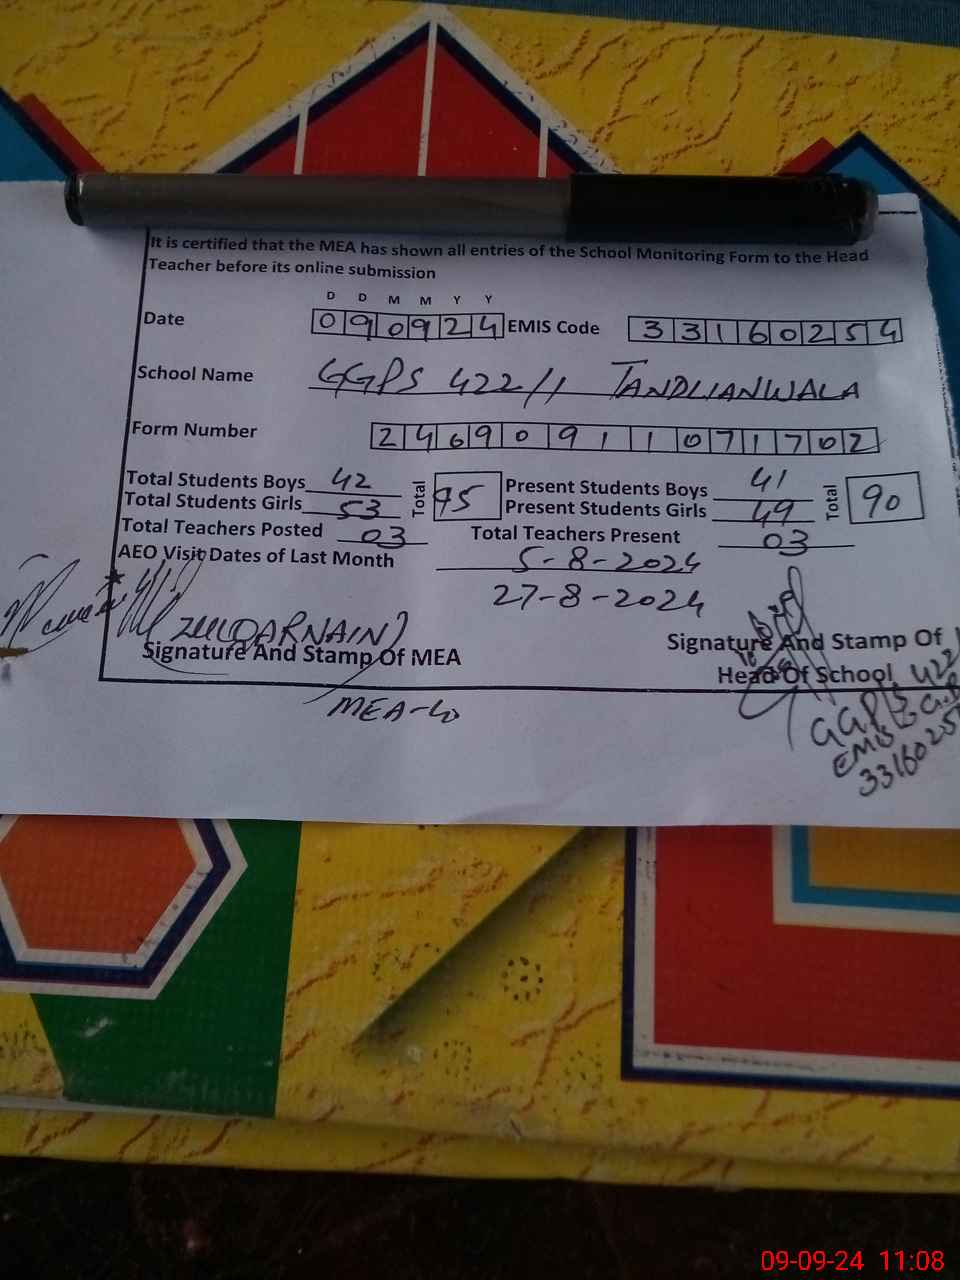 It is certified that the MEA has shown all entries of the School Monitoring Form to the Head
Teacher before its online submission
D D M M Y Y
Date 090924 EMIS Code 33160254
School Name GGPS 422/1 TANDLIANWALA
Form Number 24690911071702
Total Students Boys 42 Total 95 Present Students Boys 41 Total 90
Total Students Girls 53 Present Students Girls 49
Total Teachers Posted 03 Total Teachers Present 03
AEO Visit Dates of Last Month 5-8-2024
27-8-2024
ZULQARNAIN)
Signature And Stamp Of MEA
Signature And Stamp Of
Head Of School
MEA-40
GGPS 422
EMIS
3316025
09-09-24 11:08